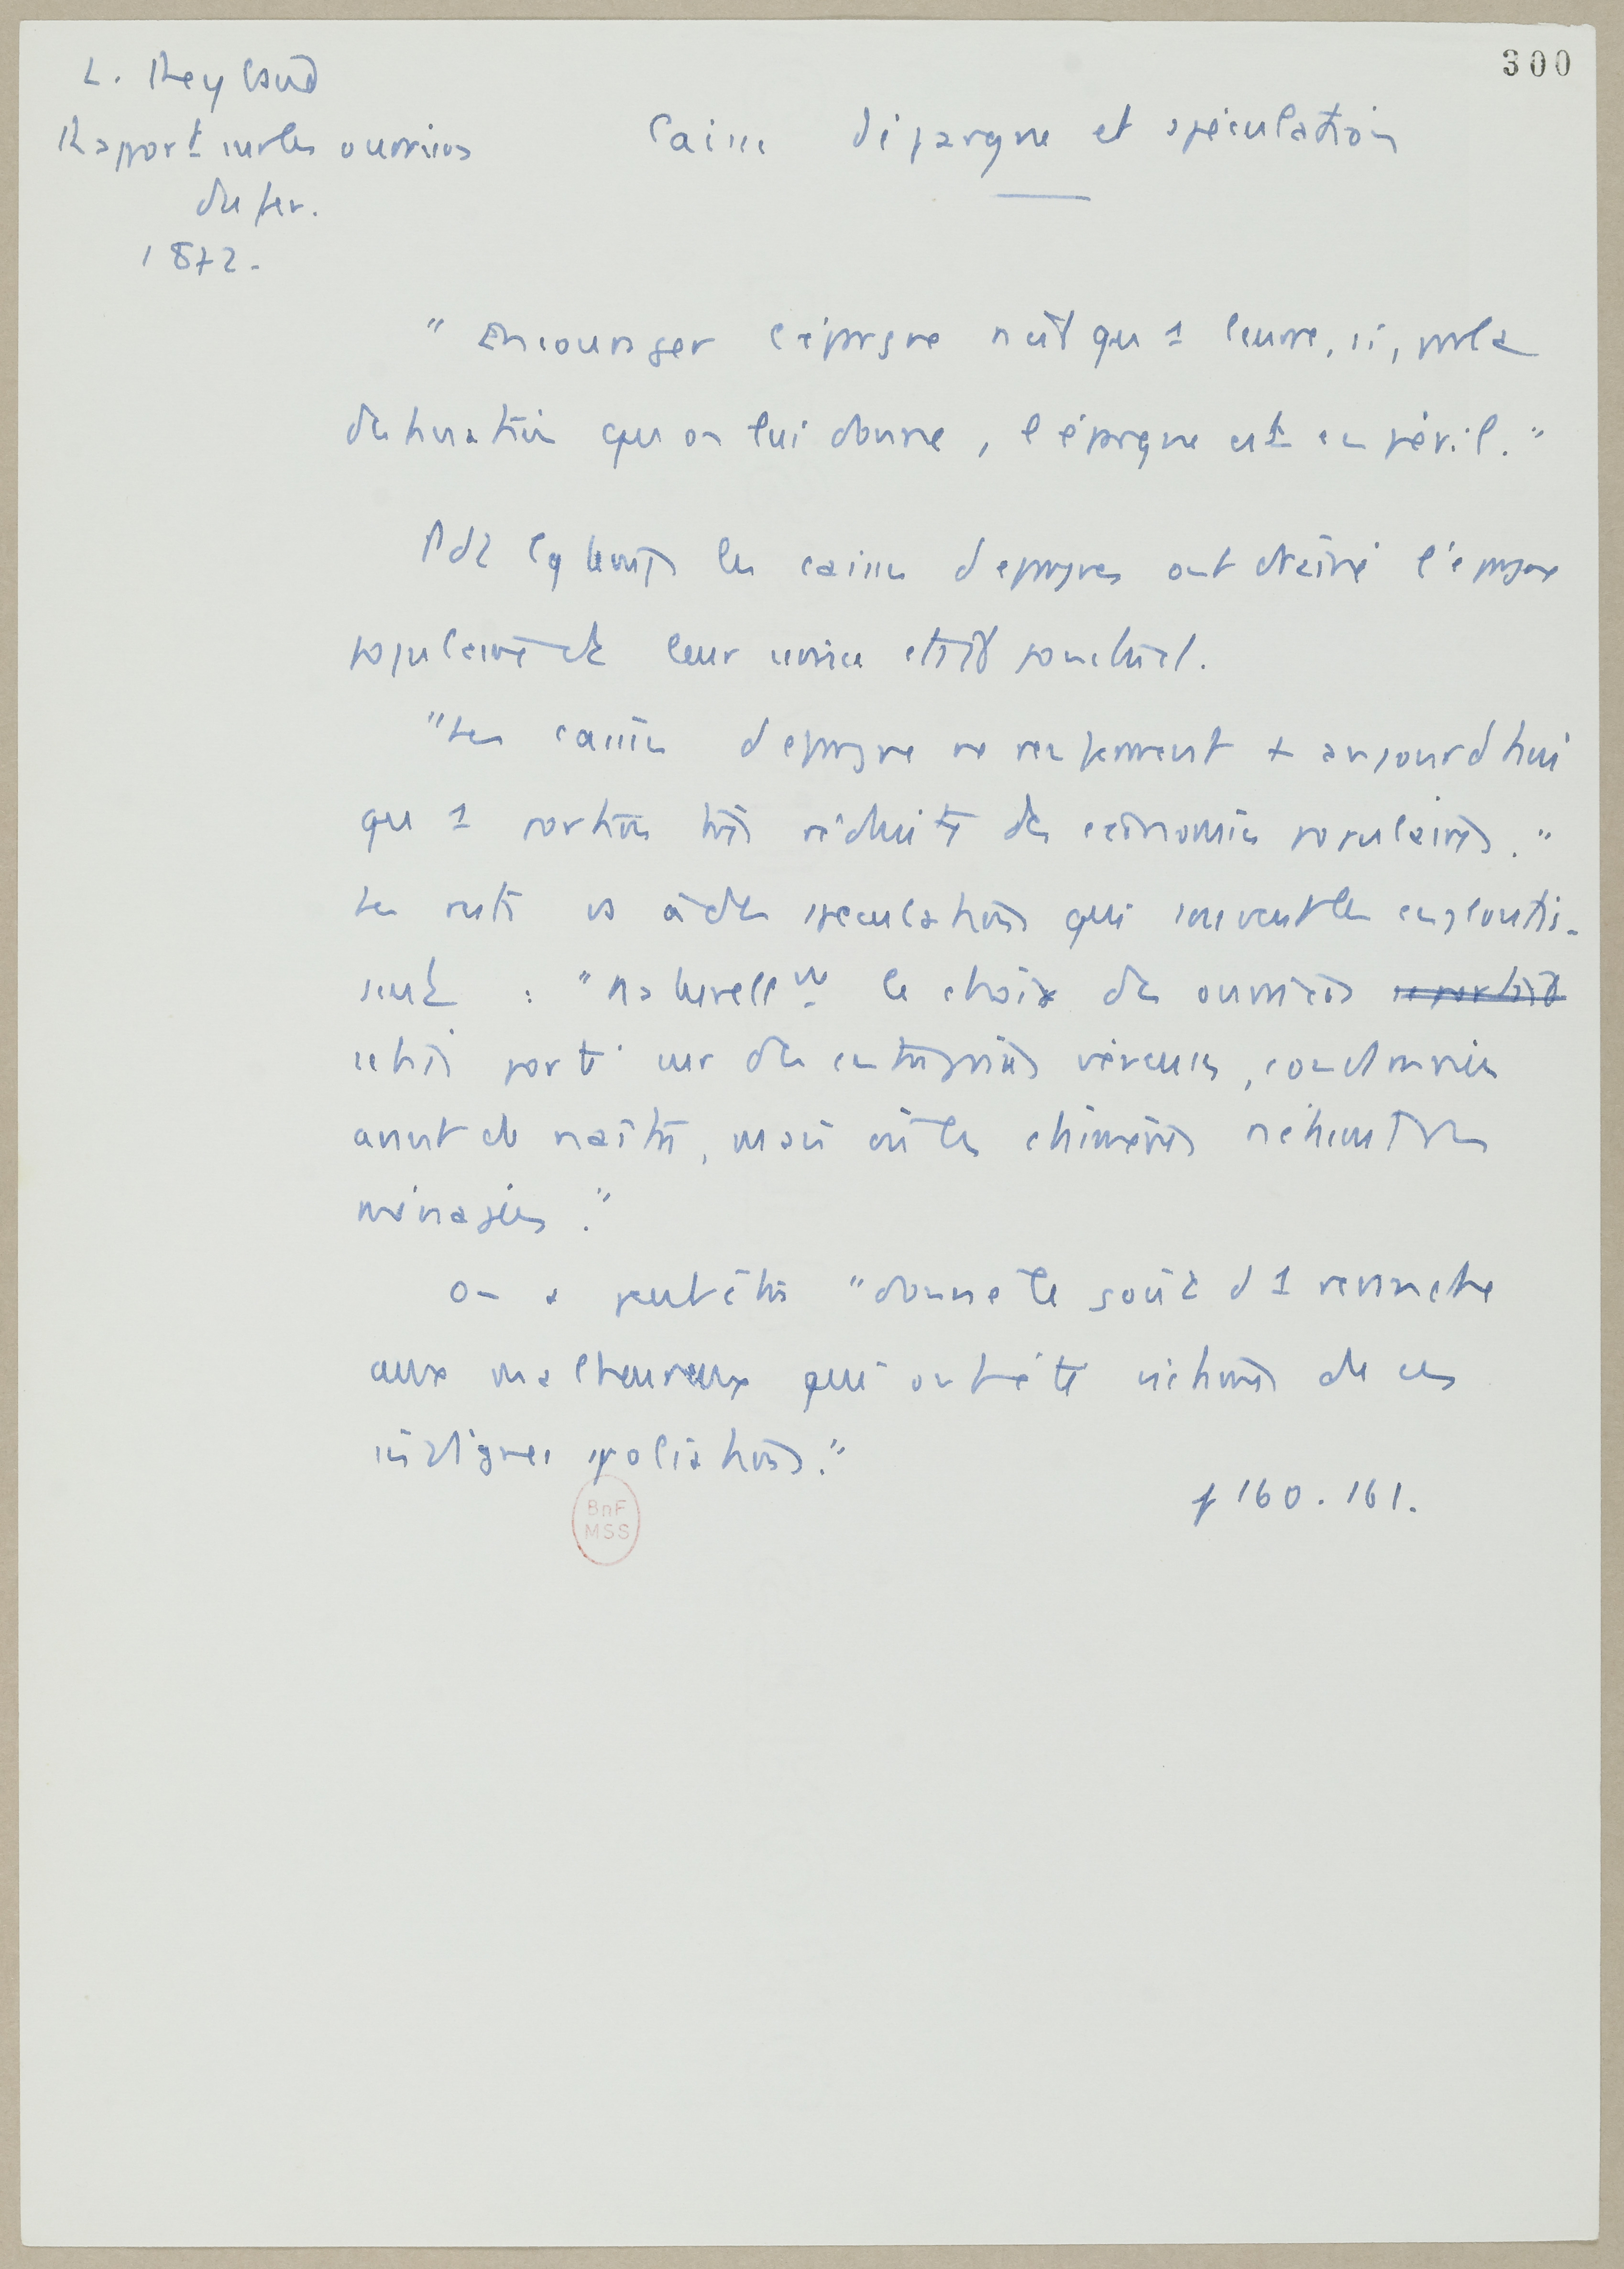 300
L. Reybaud
Rapport sur les ouvriers
du fer.
1872.
Caisse d'épargne et spéculation
"Encourager l'épargne n'est qu'1 leurre, si, par la
destination qu'on lui donne, l'épargne est en péril."
Pdt lgtemps les caisses d'épargnes ont drainé l'épargne
populaire et leur service était ponctuel.
"Les caisses d'épargne ne renferment + aujourd'hui
qu'1 portion très réduite des économies populaires."
Le reste va à des spéculations qui souvent les engloutis-
sent : "Naturellmt le choix des ouvriers se portait
s'était porté sur des entreprises véreuses, condamnées
avant de naître, mais où les chimères n'étaient pas
ménagées."
On a peut-être "donné le goût d'1 revanche
aux malheureux qui ont été victimes de ces
indignes spoliations."
p 160. 161.
BnF
MSS